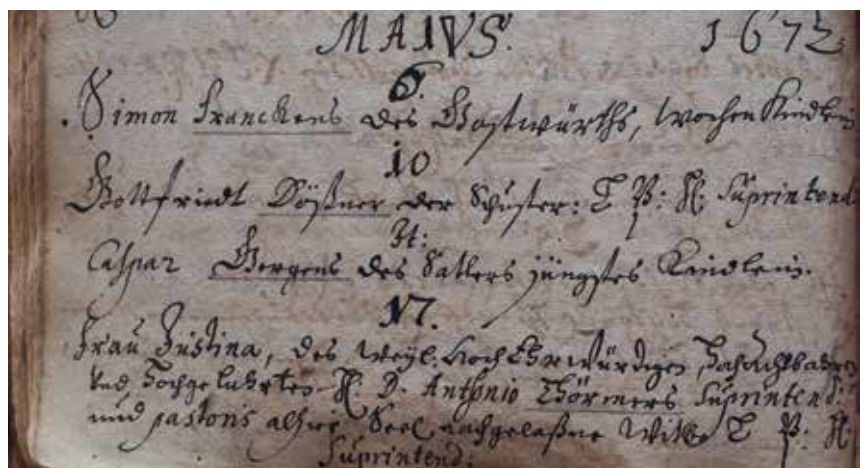 MAIUS. 1672
6.
Simon Franckens des Gastwürths, wochen Kindlein
10
Gottfriedt Dößner der Schuster: L P: H: Suprintend
It:
Caspar Gergens des Satlers jüngstes Kindlein.
17.
Frau Justina, des Weyl. Hoch Ehrwürdigen, Hochachtbahren
Und Hochgelahrten H: D. Antonio Suprintend:
und pastoris alhier Seel. nachgelaßne Witbe L P: H:
Suprintend: